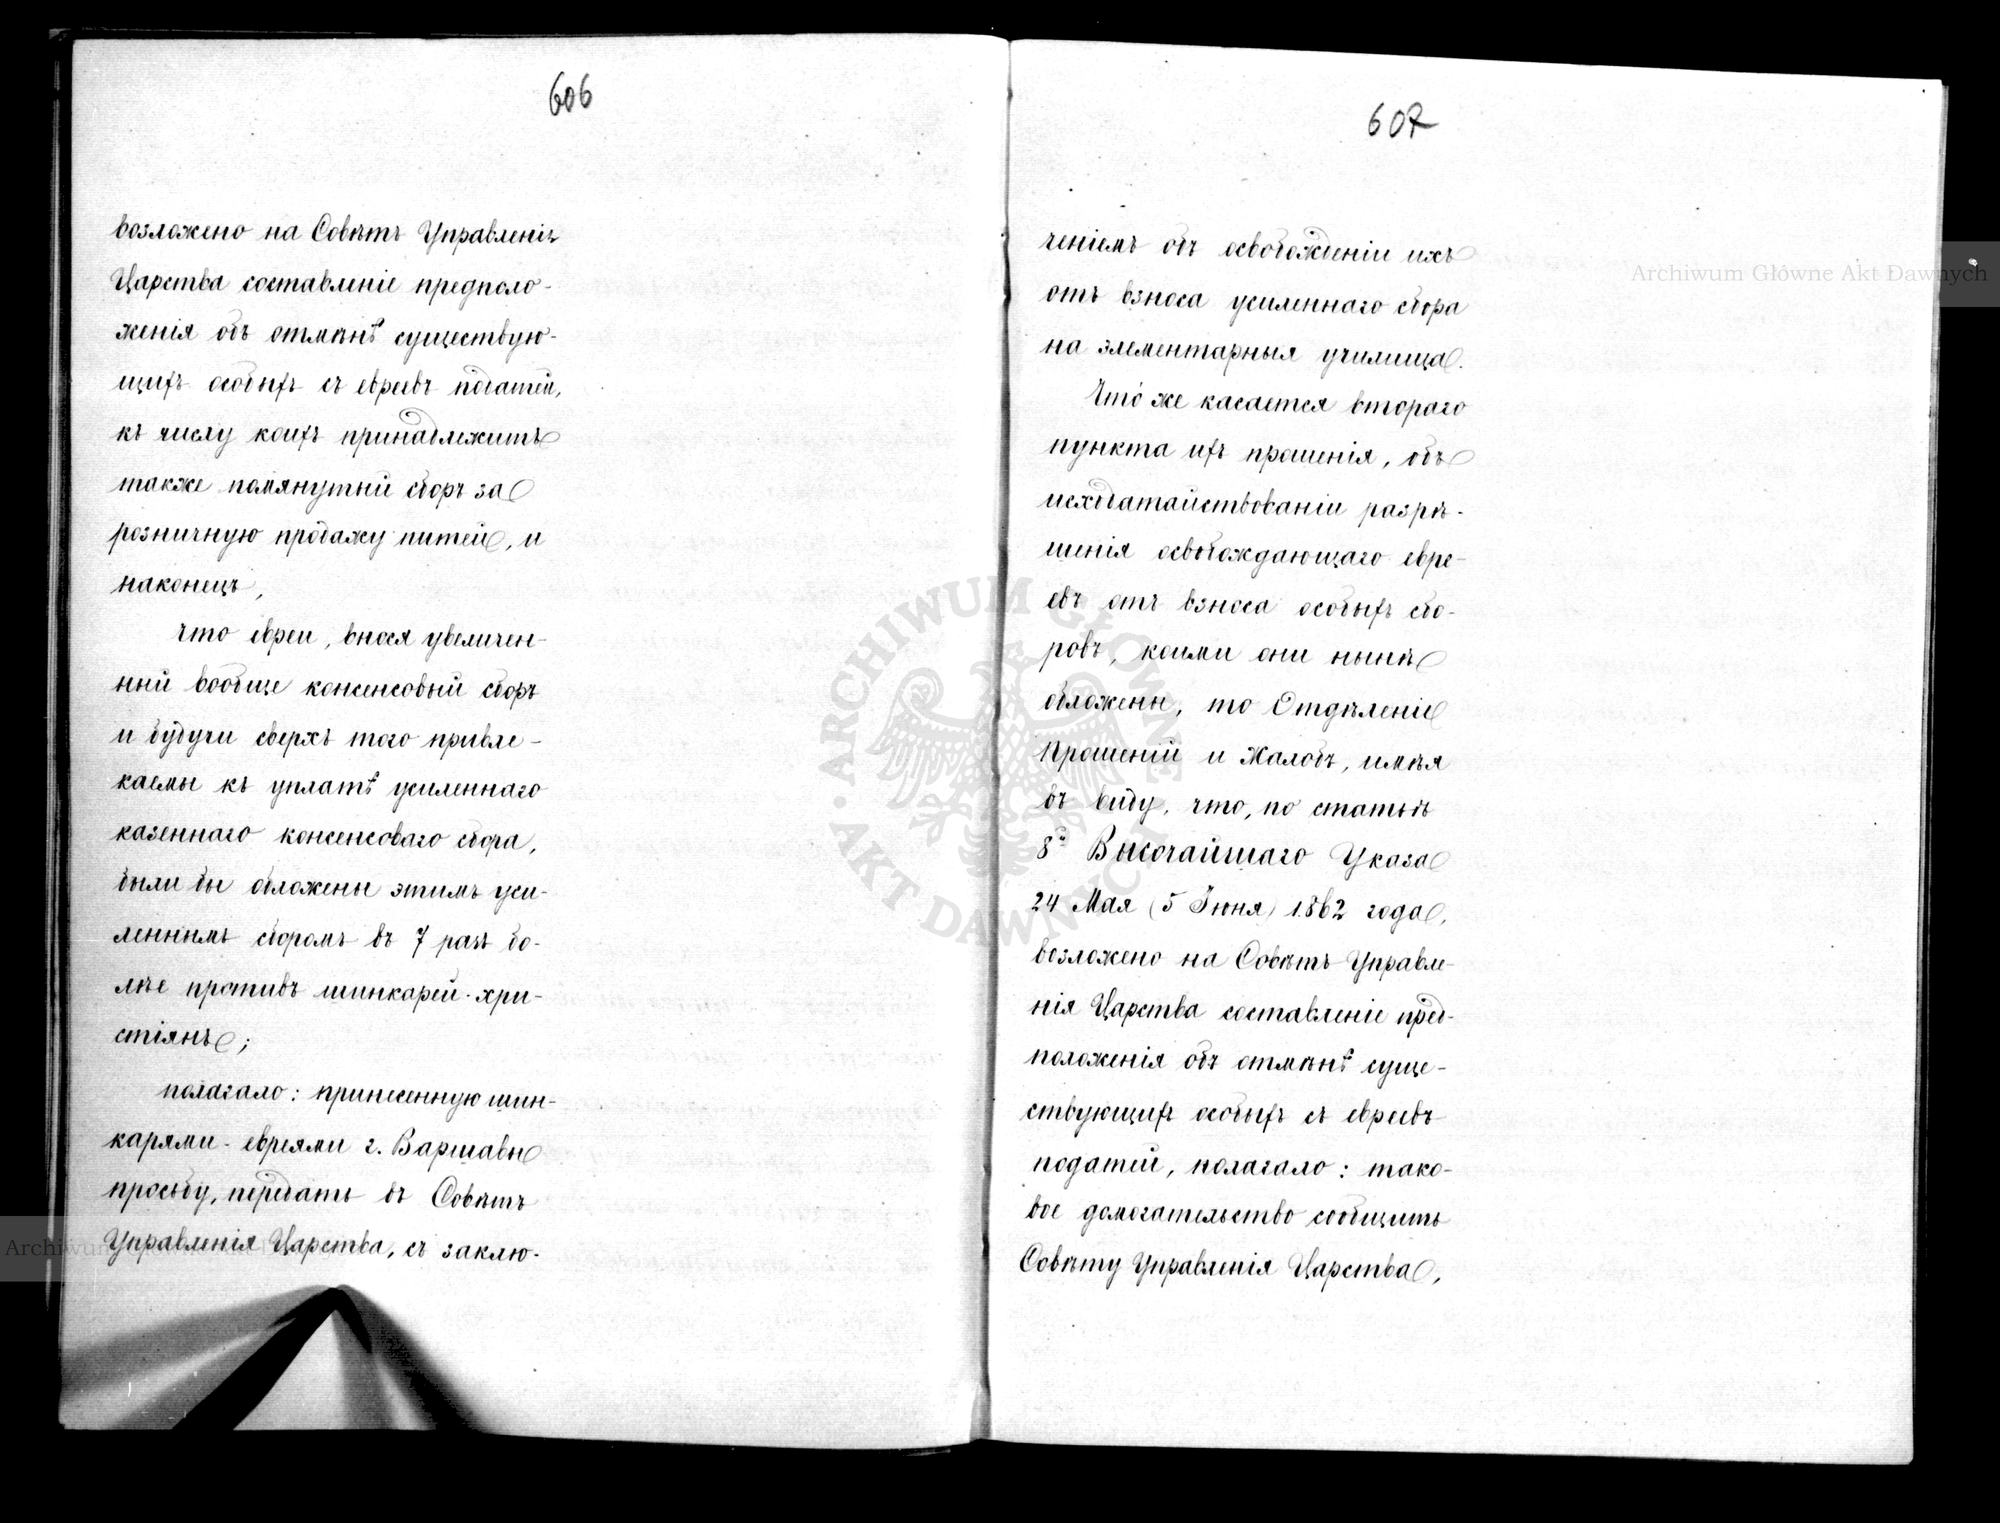 606
возложено на Совѣтъ Управленія
Царства составленіе предполо-
женія объ отмѣнѣ существую-
щихъ особыхъ съ евреевъ податей,
къ числу коихъ принадлежитъ
также помянутый сборъ за
розничную продажу питей, и
наконецъ,
что евреи, внося увеличен-
ный вообще консенсовый сборъ
и будучи сверхъ того привле-
каемы къ уплатѣ усиленнаго
казеннаго консенсоваго сбора,
были бы обложены этимъ уси-
леннымъ сборомъ въ 7 разъ бо-
лѣе противъ шинкарей-хри-
стіянъ;
полагало: принесенную шин-
карями-евреями г. Варшавы
просьбу, передать въ Совѣтъ
Управленія Царства, съ заклю-
607
ченіемъ объ освобожденіи ихъ
отъ взноса усиленнаго сбора
на элементарныя училища.
Что же касается втораго
пункта ихъ прошенія, объ
исходатайствованіи разрѣ-
шенія освобождающаго евре-
евъ отъ взноса особыхъ сбо-
ровъ, коими они нынѣ
обложены, то Отдѣленіе
Прошеній и Жалобъ, имѣя
въ виду, что, по статьѣ
8й Высочайшаго Указа
24 Мая (5 Іюня) 1862 года,
возложено на Совѣтъ Управле-
нія Царства составленіе пред-
положенія объ отмѣнѣ суще-
ствующихъ особыхъ съ евреевъ
податей, полагало: тако-
вое домогательство сообщить
Совѣту Управленія Царства,
Archiwum Główne Akt Dawnych
ARCHIWUM GŁÓWNE AKT DAWNYCH